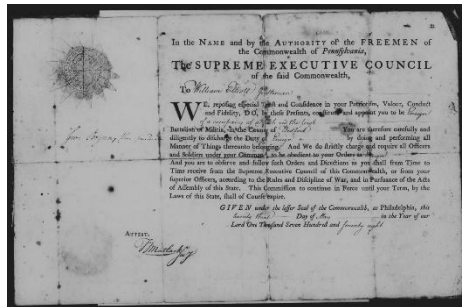 In the NAME and by the AUTHORITY of the FREEMEN of
the Commonwealth of Pennsylvania,
The SUPREME EXECUTIVE COUNCIL
of the said Commonwealth,
To William Elliott
WE, reposing especial Trust and Confidence in your Patriotism, Valour, Conduct
and Fidelity, DO, by these Presents, constitute and appoint you to be Ensign
of a company of
Battalion of Militia, in the County of Bedford You are therefore carefully and
diligently to discharge the Duty of Ensign by doing and performing all
Manner of Things thereunto belonging. And We do strictly charge and require all Officers
and Soldiers under your Command, to be obedient to your Orders as Ensign
And you are to observe and follow such Orders and Directions as you shall from Time to
Time receive from the Supreme Executive Council of this Commonwealth, or from your
superior Officers, according to the Rules and Discipline of War, and in Pursuance of the Acts
of Assembly of this State. This Commission to continue in Force until your Term, by the
Laws of this State, shall of Course expire.
GIVEN under the lesser Seal of the Commonwealth, at Philadelphia, this
Day of in the Year of our
Lord One Thousand Seven Hundred and seventy eight
ATTEST.
TMatlack Secy